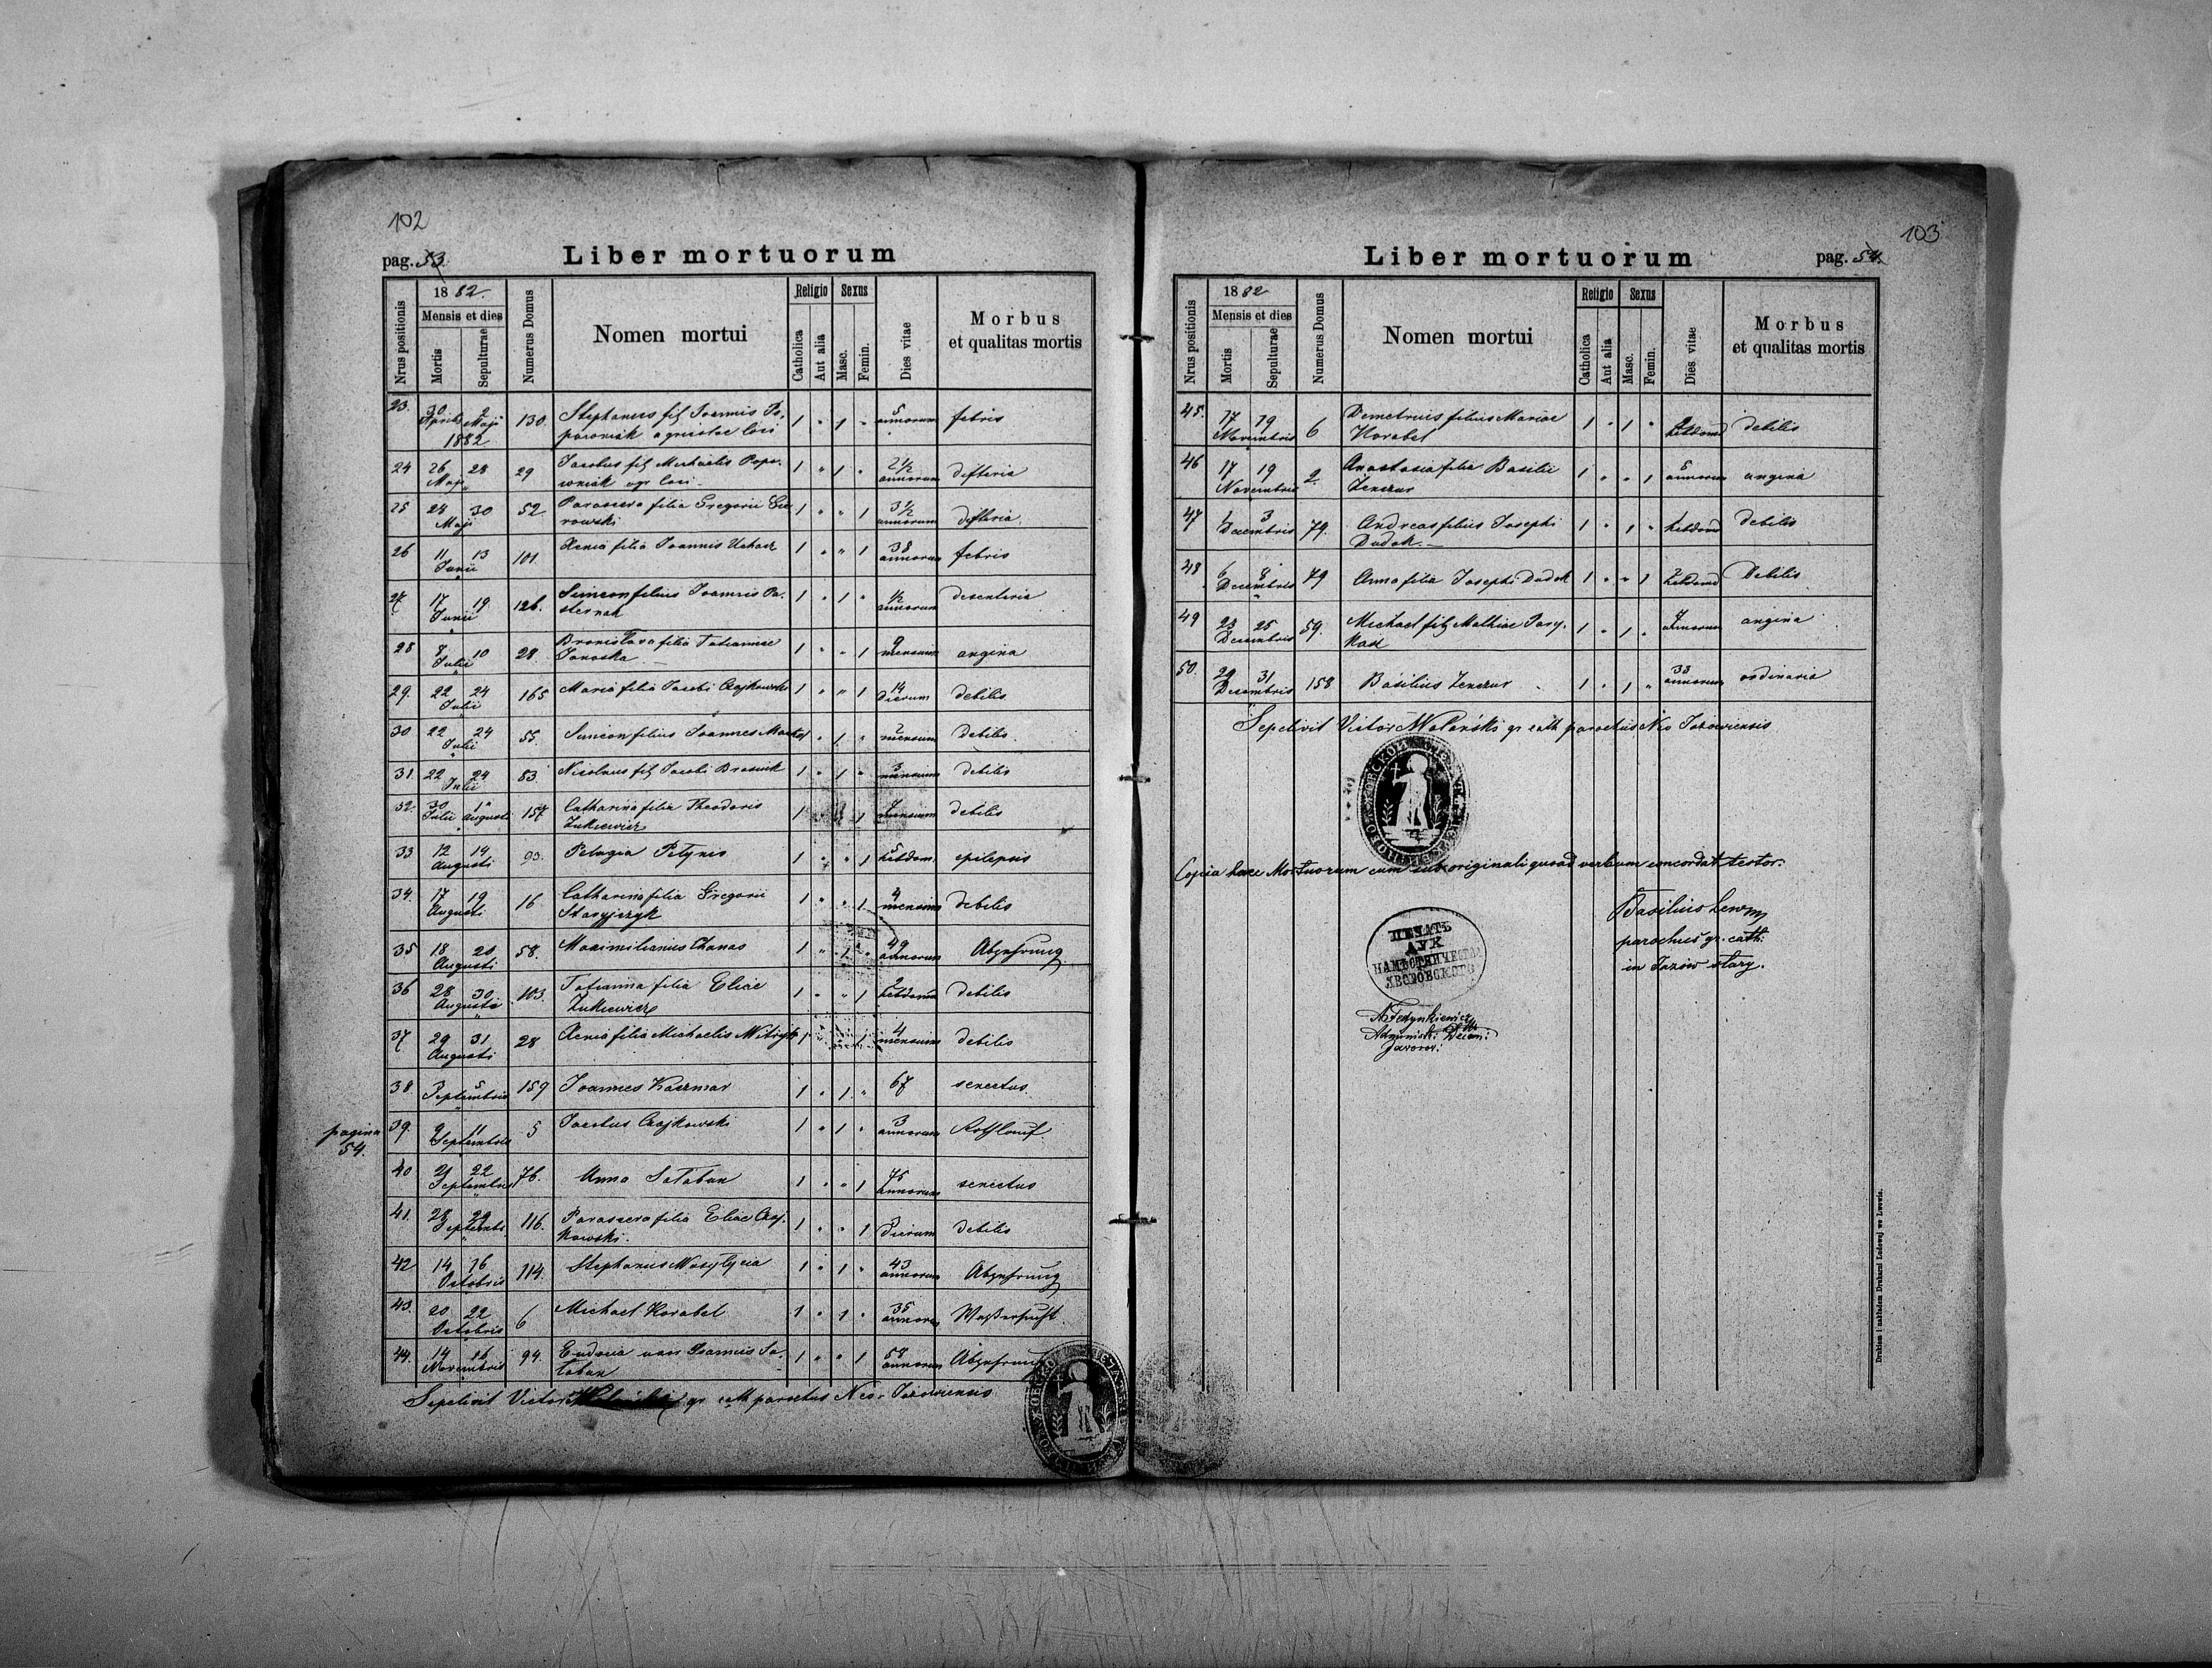 102
pag. 53.
Liber mortuorum
Nrus positionis
18 82.
Mensis et dies
Mortis
Sepulturae
Numerus Domus
Nomen mortui
Religio
Catholica
Aut alia
Sexus
Masc.
Femin.
Dies vitae
Morbus
et qualitas mortis
23. 30 Aprilis 2 Maji 1882 130. Stephanus fil Joannis Po- 1 " 1 " 5 annorum febris
powniak agricolae loci
24 26 28 Maji 29 Jacobus fil Michaelis Popo- 1 " 1 " 2 1/2 annorum difteria
wniak agr loci
25 28 30 Maji 52 Parasceva filia Gregorii 1 " " 1 3 1/2 annorum difteria
rowski
26 11 13 Junii 101 Xenia filia Joannis 1 " " 1 38 annorum febris
27 17 19 Junii 126. Simeon filius Joannis Pa- 1 " 1 " 1/2 annorum desenteria
sternak
28 8 10 Julii 28 Bronislava filia Tatiannae 1 " " 1 9 mensium angina
29. 22 24 Julii 165 Maria filia Jacobi Czajkowski 1 " " 1 14 dierum debilis
30 22 24 Julii 55. Simeon filius Joannes 1 " 1 " 2 mensium debilis
31. 22 24 Julii 83 Nicolaus fil Jacobi 1 " 1 " 3 mensium debilis
32. 30 Julii 1 Augusti 157 Catharina filia Theodoris 1 1 7 mensium debilis
Zukiewicz
33 12 14 Augusti 93. Pelagia Petynis 1 " " 1 5 hebdom. epilepsis
34. 17 19 Augusti 16 Catharina filia Gregorii 1 " " 1 4 mensium debilis
35 18 20 Augusti 58. Maximilianus Chanas 1 " 1 " 49 annorum Abzehrung
36 28 30 Augusti 103. Tatianna filia Eliae 1 " " 1 2 hebdoma debilis
Zukiewicz
37 29 31 Augusti 28 Xenia filia Michaelis 1 1 4 mensium debilis
38. 5 Septembris 159 Joannes Kaczmar 1 " 1 " 67 senectus
pagina
54.
39. 9 11 Septembris 5 Jacobus Czajkowski 1 " 1 " 3 annorum
40 21 22 Septembris 76. Anna Sataban 1 " " 1 75 annorum senectus
41. 28 29 Septembr. 116. Parasceva filia Eliae Czaj- 1 " " 1 dierum debilis
kowski.
42 14 16 Octobris 114. Stephanus 1 " 1 " 43 annorum Abzehrung
43. 20 22 Octobris 6 Michael Korabel 1 " 1 " 35 annorum Wassersucht.
44. 14 16 Novembris 94. Eudocia uxor Joannis Sa- 1 " " 1 58 annorum Abzehrung
taban
Sepelivit Victor Wolański gr cath parochus Neo Jazowiensis
103
Liber mortuorum
pag. 54.
Nrus positionis
18 82
Mensis et dies
Mortis
Sepulturae
Numerus Domus
Nomen mortui
Religio
Catholica
Aut alia
Sexus
Masc.
Femin.
Dies vitae
Morbus
et qualitas mortis
45. 17 19 Novembris 6 Demetrius filius Mariae 1 " 1 " 2 hebdomd debilis
Korabel
46 17 19 Novembris 2. Anastasia filia Basilii 1 " " 1 5 annorum angina
Zenczur
47 1 3 Decembris 79. Andreas filius Josephi 1 " 1 " 1 hebdomd debilis
Dudok.
48 6 8 Decembris 79 Anna filia Josephi Dudok 1 " " 1 2 hebdomd Debilis
49 23 25 Decembris 59. Michael fil Mathiae Pary- 1 " 1 " 7 annorum angina
50. 29 31 Decembris 158 Basilius Zenczur 1 " 1 " 33 annorum ordinaria
Sepelivit Victor Wolański gr cath parochus Neo Jazowiensis
Copia haec Mortuorum cum suo originali quoad verbum concordat testor.
Basilius
parochus gr. cath:
in Jazów stary.
ПЕЧАТЬ
ДУХ
НАМѢСТНИЧЕСТВА
ЯВОРОВСКОГО
A Fedynkiewicz
Administr: Decan:
Javorov:
Drukiem i nakładem Drukarni Ludowej we Lwowie.